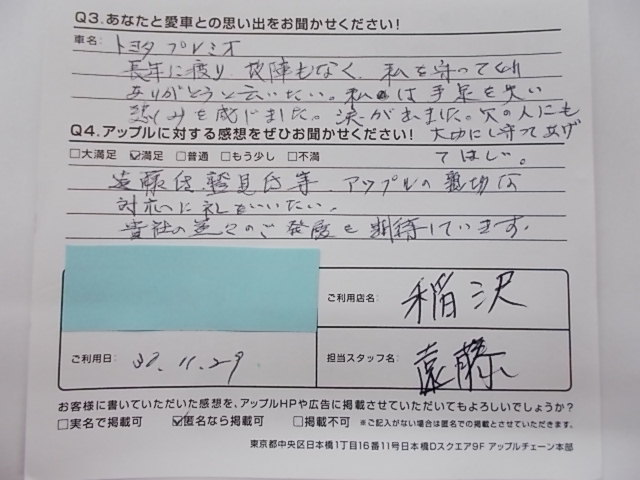 Q3.あなたと愛車との思い出をお聞かせください!
車名: トヨタ プレミオ
長年に渡り 故障もなく、私を守ってくれ
ありがとうと言いたい。私は手足を失い
悲しみを感じました。涙が出ました。次の人にも
大切にし守ってあげ
てほしい。
Q4.アップルに対する感想をぜひお聞かせください!
□大満足 ☑満足 □普通 □もう少し □不満
遠藤氏 鷲見氏等、アップルの親切な
対応に礼をいいたい。
貴社の益々のご発展を期待しています。
ご利用店名: 稲沢
ご利用日: 30.11.29
担当スタッフ名: 遠藤
お客様に書いていただいた感想を、アップルHPや広告に掲載させていただいてもよろしいでしょうか?
□実名で掲載可 ☑匿名なら掲載可 □掲載不可 ※ご記入がない場合は匿名での掲載とさせていただきます。
東京都中央区日本橋1丁目16番11号日本橋Dスクエア9F アップルチェーン本部